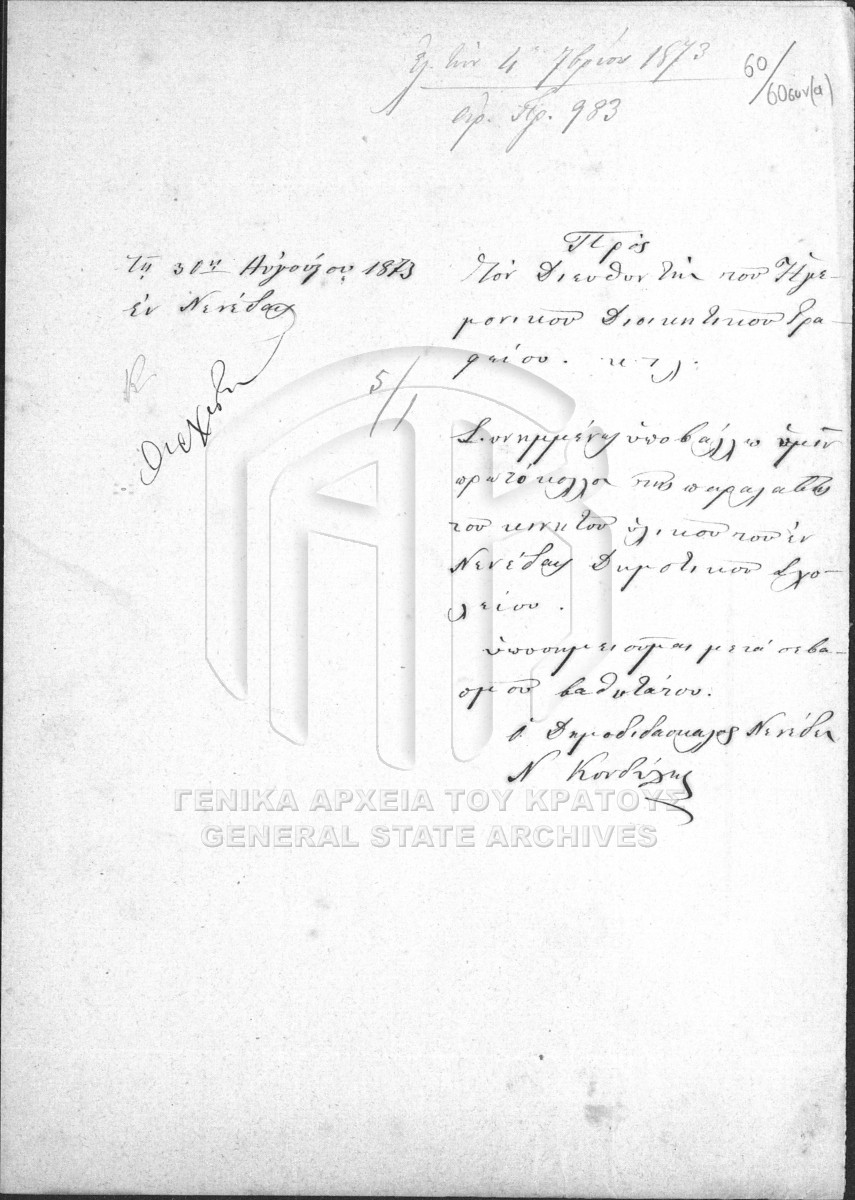 Ἐλ. τὴν 4 7βρίου 1873
ἀρ. Πρ. 983
60/60συν(α)
Τῇ 31ῃ Αὐγούστου 1873
ἐν Νενέδαις
5/1
Πρὸς
τὸν Διευθυντὴν τοῦ Ἡγε-
μονικοῦ Διοικητικοῦ Γρα-
φείου. κ τ λ.
Συνημμένως ὑποβάλλω ὑμῖν
πρωτόκολλον τῆς παραλαβῆς
τοῦ κινητοῦ ὑλικοῦ τοῦ ἐν
Νενέδαις Δημοτικοῦ Σχο-
λείου.
ὑποσημειοῦμαι μετὰ σεβα-
σμοῦ βαθυτάτου.
ὁ Δημοδιδάσκαλος
Ν Κονδύλης
ΓΕΝΙΚΑ ΑΡΧΕΙΑ ΤΟΥ ΚΡΑΤΟΥΣ
GENERAL STATE ARCHIVES